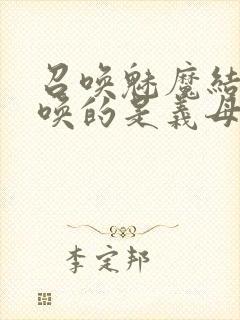 召唤魅魔结
唤的是义母
李定邦